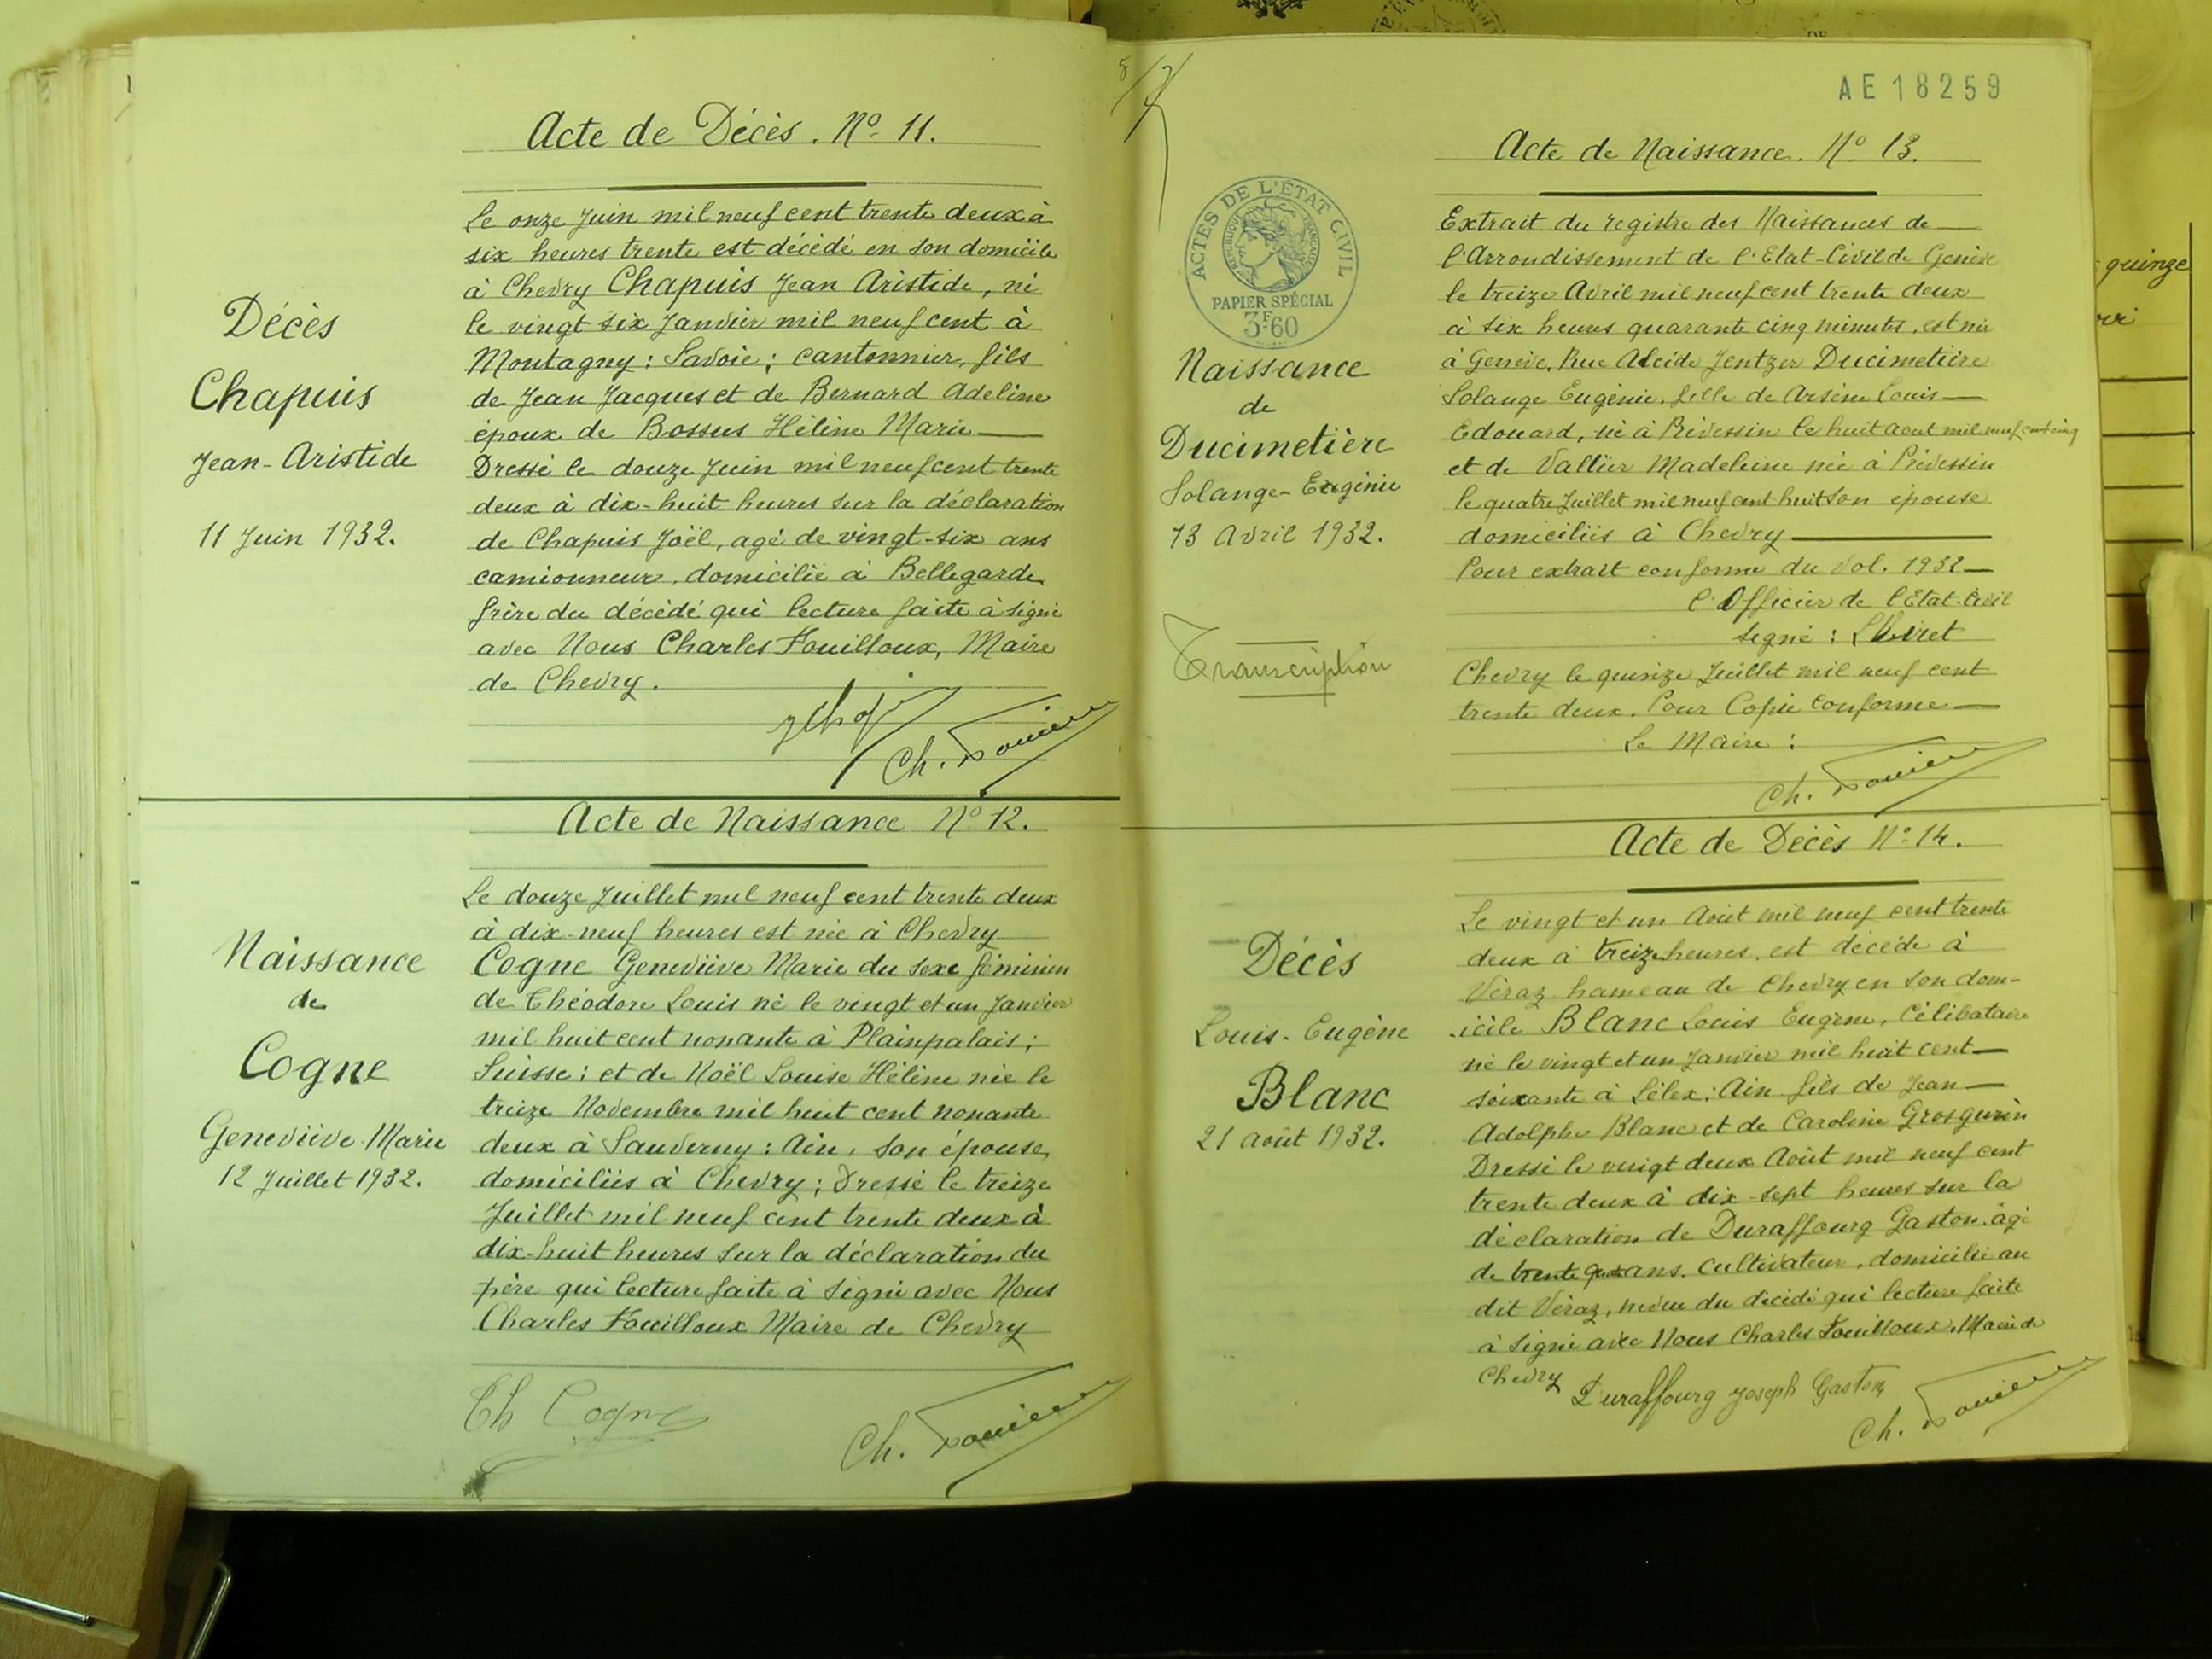 Acte de Décès. Nº 11.
Décès
Chapuis
Jean-Aristide
11 Juin 1932.
Le onze Juin mil neuf cent trente deux à
six heures trente est décèdé en son domicile
à Chevry Chapuis Jean Aristide, né
le vingt six Janvier mil neuf cent à
Montagny : Savoie ; cantonnier, fils
de Jean Jacques et de Bernard Adeline
époux de Bossus Hélène Marie
Dressé le douze Juin mil neuf cent trente
deux à dix-huit heures sur la déclaration
de Chapuis Joël, agé de vingt-six ans
camionneur, domicilié à Bellegarde
frère du décèdé qui lecture faite à signé
avec Nous Charles Fouilloux, Maire
de Chevry.
Ch.
Acte de Naissance Nº 12.
Naissance
de
Cogne
Geneviève-Marie
12 Juillet 1932.
Le douze Juillet mil neuf cent trente deux
à dix-neuf heures est née à Chevry
Cogne Geneviève Marie du sexe féminin
de Théodore Louis né le vingt et un Janvier
mil huit cent nonante à Plainpalais ;
Suisse : et de Noël Louise Hélène née le
treize Novembre mil huit cent nonante
deux à Sauverny : Ain, son épouse,
domiciliés à Chevry ; Dressé le treize
Juillet mil neuf cent trente deux à
dix-huit heures sur la déclaration du
père qui lecture faite à signé avec Nous
Charles Fouilloux Maire de Chevry
Th Cogne
Ch.
AE 18259
Acte de Naissance. Nº 13.
ACTES DE L'ÉTAT CIVIL
RÉPUBLIQUE FRANÇAISE
PAPIER SPÉCIAL
3F60
Naissance
de
Ducimetière
Solange-Eugénie
13 Avril 1932.
Transcription
Extrait du registre des Naissances de
l'Arrondissement de l'Etat-Civil de Genève
le treize Avril mil neuf cent trente deux
à six heures quarante cinq minutes, est née
à Genève, Rue Alcide Jentzer Ducimetière
Solange Eugénie, fille de Arsène Louis
Edouard, né à Prévessin le huit aout mil neuf cent cinq
et de Vallier Madeleine née à Prévessin
le quatre Juillet mil neuf cent huit son épouse
domiciliés à Chevry
Pour extrait conforme du Vol. 1932
l'Officier de l'Etat-Civil
signé :
Chevry le quinze Juillet mil neuf cent
trente deux. Pour Copie conforme
Le Maire :
Ch.
Acte de Décès Nº 14.
Décès
Louis-Eugène
Blanc
21 août 1932.
Le vingt et un Août mil neuf cent trente
deux à treize heures, est décèdé à
Véraz hameau de Chevry en son dom-
icile Blanc Louis Eugène, Célibataire
né le vingt et un Janvier mil huit cent
soixante à Lélex : Ain fils de Jean
Adolphe Blanc et de Caroline Grosgurin
Dressé le vingt deux Août mil neuf cent
trente deux à dix-sept heures sur la
déclaration de Duraffourg Gaston, âgé
de trente ans. Cultivateur, domicilié au
dit Véraz, neveu du décédé qui lecture faite
à signé avec Nous Charles Fouilloux, Maire de
Chevry
Duraffourg Joseph Gaston
Ch.
quinze